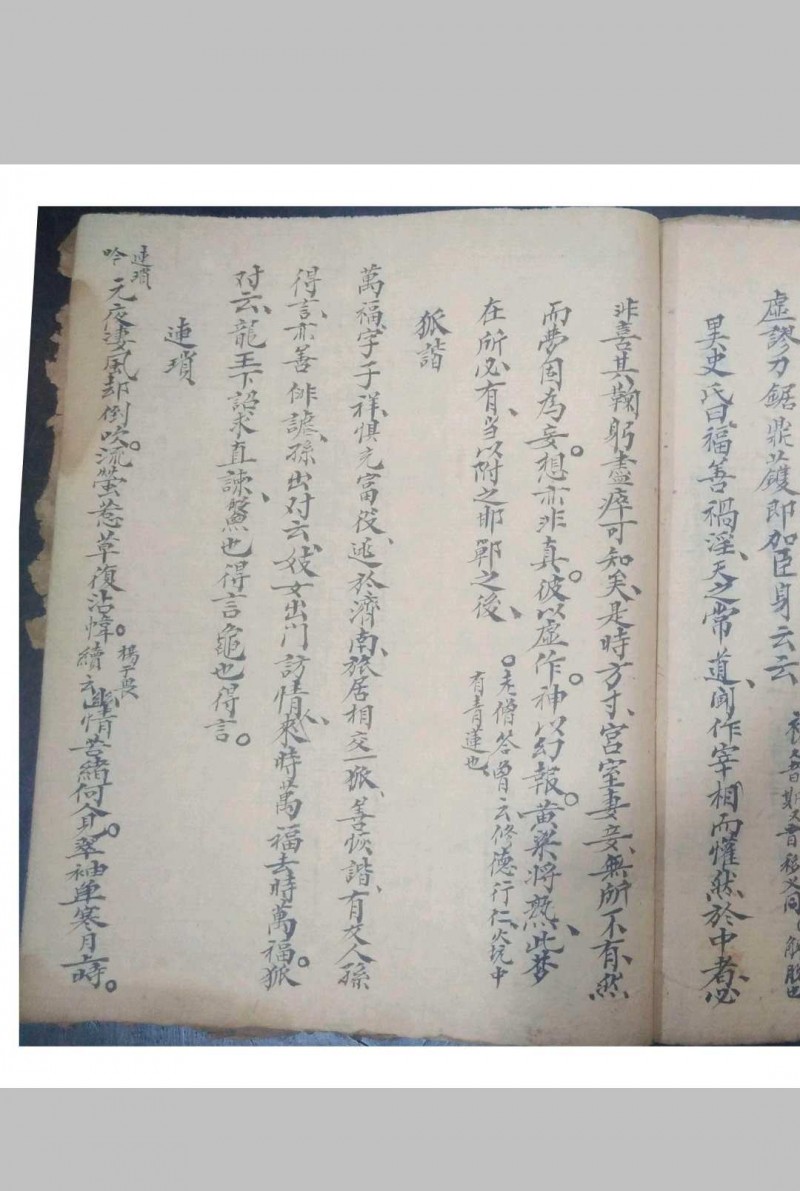 虛謬刀鋸鼎鑊即加臣身云云
異史氏曰福善禍淫、天之常道、聞作宰相而懽然於中者、必
非喜其鞠躬盡瘁可知矣、是時方寸、宮室妻妾、無所不有、然
而夢固為妄。想亦非真。彼以虛作。神以幻報。黃粱將熟、此夢
在所必有、当以附之邯鄲之後、
。老僧答曾云修德行仁、火坑中
有青蓮也、
狐諧
萬福、字子祥、懼充富役、逃於濟南、旅居相交一狐、善恢諧、有交人孫
得言、亦善俳謔、孫出对云、妓女出门訪情人、來時萬福去時萬福。狐
对云、龍王下詔求直諫、鱉也得言龜也得言。
連瑣
連瑣
吟
元夜淒風却倒吹。流螢惹草復沾幃。
楊于畏
續云
幽情苦緒何人見。翠袖単寒月上時。